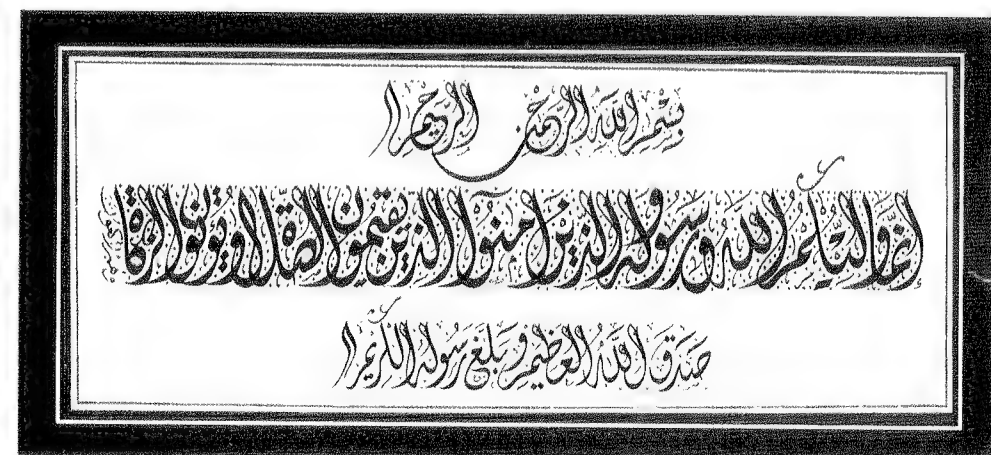 بِسْمِ اللّٰهِ الرَّحْمٰنِ الرَّحِيمِ
إِنَّمَا وَلِيُّكُمُ اللّٰهُ وَرَسُولُهُ وَالَّذِينَ آمَنُوا الَّذِينَ يُقِيمُونَ الصَّلَاةَ وَيُؤْتُونَ الزَّكَاةَ
صَدَقَ اللّٰهُ الْعَظِيمُ وَبَلَّغَ رَسُولُهُ الْكَرِيمُ